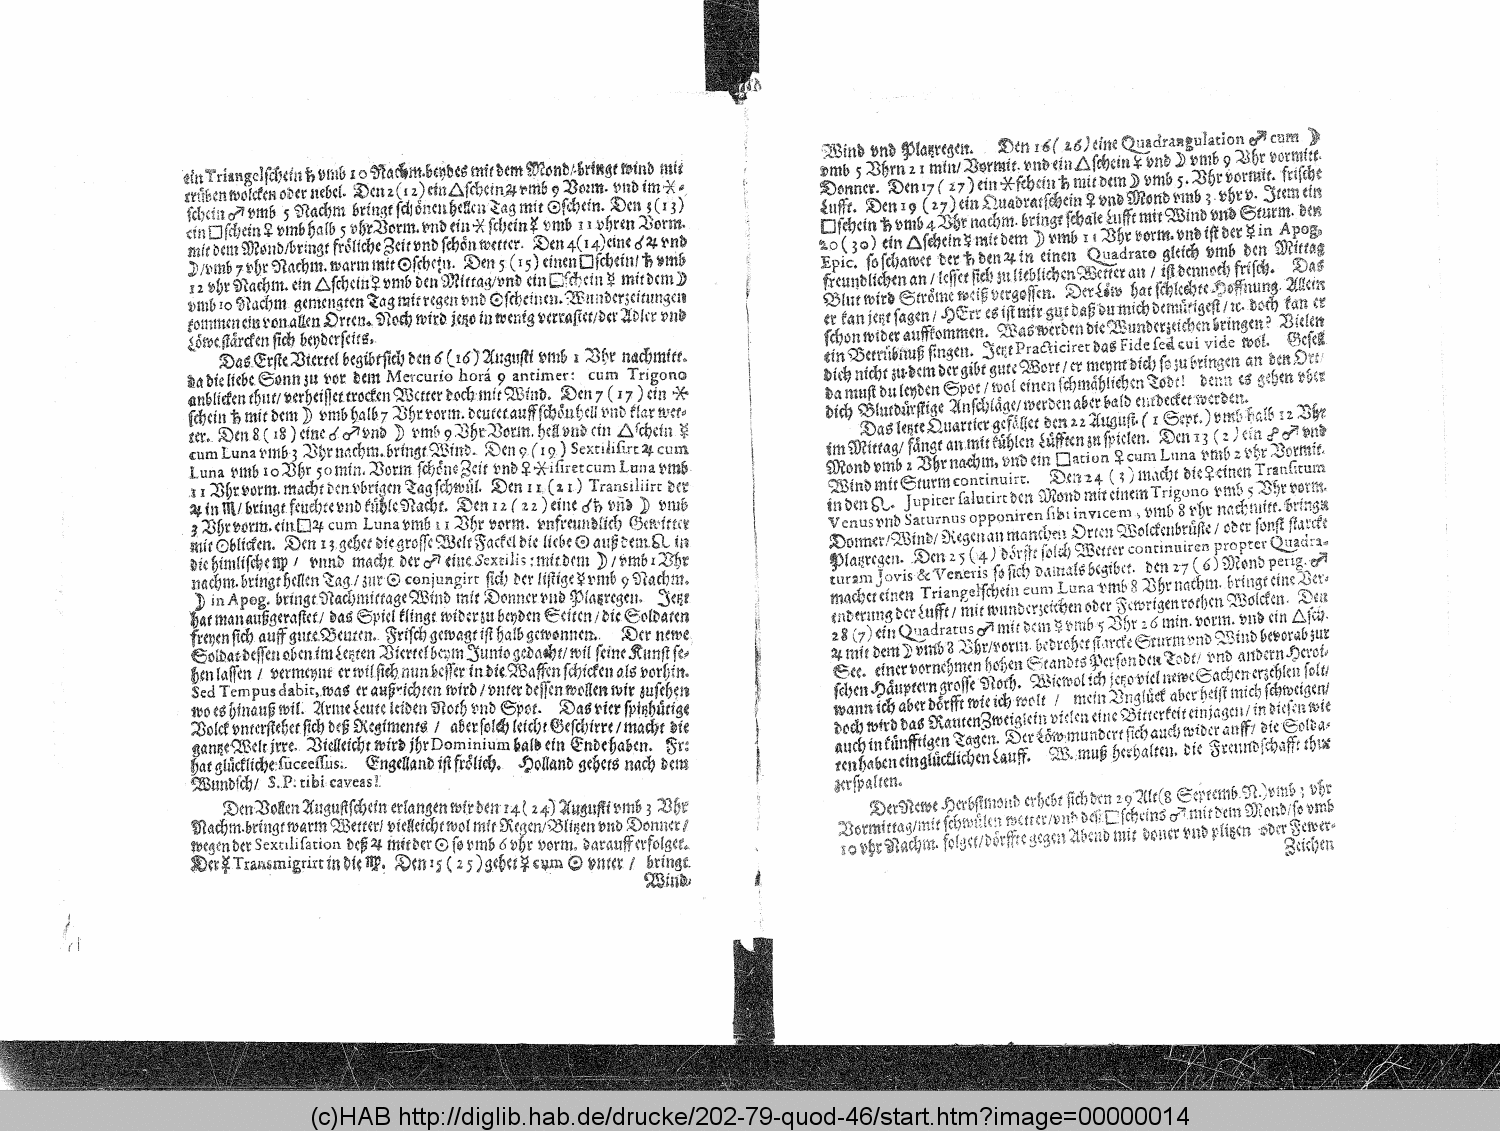 ein Triangelschein ♄ vmb 10 Nachm. beydes mit dem Mond/ bringt wind mit
trüben wolcken oder nebel. Den 2 (12) ein △schein ♃ vmb 9 Vorm. vnd im ⚹-
schein ♂ vmb 5 Nachm bringt schönen hellen Tag mit ☉schein. Den 3 (13)
ein □schein ♀ vmb halb 5 vhr Vorm. vnd ein ⚹ schein ☿ vmb 11 vhren Vorm.
mit dem Mond/bringt fröliche Zeit vnd schön wetter. Den 4 (14) eine ☌ ♃ vnd
☽/vmb 7 vhr Nachm. warm mit ☉schein. Den 5 (15) einen □schein/ ♄ vmb
12 vhr Nachm. ein △schein ♀ vmb den Mittag/vnd ein □schein ☿ mit dem ☽
vmb 10 Nachm gemengten Tag mit regen vnd ☉scheinen. Wunderzeitungen
kommen ein von allen Orten. Noch wird jetzo in wenig verrastet/der Adler vnd
Löwe stärcken sich beyderseits.
Das Erste Viertel begibt sich den 6 (16) Augusti vmb 1 Vhr nachmitt.
da die liebe Sonn zu vor dem Mercurio horâ 9 antimer: cum Trigono
anblicken thut/ verheisset trocken Wetter doch mit Wind. Den 7 (17) ein ⚹
schein ♄ mit dem ☽ vmb halb 7 Vhr vorm. deutet auff schön hell vnd klar wet-
ter. Den 8 (18) eine ☌ ♂ vnd ☽ vmb 9 Vhr Vorm. hell vnd ein △schein ☿
cum Luna vmb 3 Vhr nachm. bringt Wind. Den 9 (19) Sextilisirt ♃ cum
Luna vmb 10 Vhr 50 min. Vorm schöne Zeit vnd ♀ ⚹isiret cum Luna vmb
11 Vhr vorm. macht den vbrigen Tag schwül. Den 11 (21) Transiliirt der
♃ in ♏/ bringt feuchte vnd kühle Nacht. Den 12 (22) eine ☌ ♄ vnd ☽ vmb
3 Vhr vorm. ein □ ♃ cum Luna vmb 11 Vhr vorm. vnfreundlich Gewitter
mit ☉blicken. Den 13 gehet die grosse Welt Fackel die liebe ☉ auß dem ♌ in
die himlische ♍ / vnnd macht der ♂ eine Sextilis: mit dem ☽/ vmb 1 Vhr
nachm. bringt hellen Tag/ zur ☉ conjungirt sich der listige ☿ vmb 9 Nachm.
☽ in Apog. bringt Nachmittage Wind mit Donner vnd Platzregen. Jetzt
hat man außgerastet/ das Spiel klingt wider zu beyden Seiten/ die Soldaten
freyen sich auff gute Beuten. Frisch gewagt ist halb gewonnen. Der newe
Soldat dessen oben im Letzten Viertel beym Junio gedacht/ wil seine Kunst se-
hen lassen / vermeynt er wil sich nun besser in die Waffen schicken als vorhin.
Sed Tempus dabit, was er außrichten wird/ vnter dessen wollen wir zusehen
wo es hinauß wil. Arme Leute leiden Noth vnd Spot. Das vier spitzhütige
Volck vnterstehet sich deß Regiments / aber solch leicht Geschirre/ macht die
gantze Welt jrre. Vielleicht wird jhr Dominium bald ein Ende haben. Fr:
hat glückliche successus. Engelland ist frölich. Holland gehets nach dem
Wundsch/ S. P. tibi caveas!
Den Vollen Augustschein erlangen wir den 14 (24) Augusti vmb 3 Vhr
Nachm. bringt warm Wetter/ vielleicht wol mit Regen/ Blitzen vnd Donner/
wegen der Sextilisation deß ♃ mit der ☉ so vmb 6 vhr vorm. darauff erfolget.
Der ☿ Transmigrirt in die ♍. Den 15 (25) gehet ☿ cum ☉ vnter / bringt
Wind
Wind vnd Platzregen. Den 16 (26) eine Quadrangulation ♂ cum ☽
vmb 5 Vhrn 21 min/ Vormit. vnd ein △schein ♀ vnd ☽ vmb 9 Vhr vormitt.
Donner. Den 17 (27) ein ⚹schein ♄ mit dem ☽ vmb 5. Vhr vormit. frische
Lufft. Den 19 (27) ein Quadratschein ♀ vnd Mond vmb 3 vhr v. Item ein
□schein ♄ vmb 4 Vhr nachm. bringt schale Lufft mit Wind vnd Sturm. den
20 (30) ein △schein ☿ mit dem ☽ vmb 11 Vhr vorm. vnd ist der ☿ in Apog.
Epic. so schawet der ♄ den ♃ in einen Quadrato gleich vmb den Mittag
freundlichen an / lesset sich zu lieblichen Wetter an / ist dennoch frisch. Das
Blut wird Ströme weiß vergossen. Der Löw hat schlechte Hoffnung. Allein
er kan jetzt sagen / HErr es ist mir gut daß du mich demütigest/ ꝛc. doch kan er
schon wider auffkommen. Was werden die Wunderzeichen bringen? Vielen
ein Betrübnuß singen. Jetzt Practiciret das Fide sed cui vide wol. Gesell
dich nicht zu dem der gibt gute Wort/ er meynt dich so zu bringen an den Ort/
da must du leyden Spot / wol einen schmählichen Todt! denn es gehen vber
dich Blutdürstige Anschläge/ werden aber bald entdecket werden.
Das letzte Quartier gefället den 22 August. (1 Sept.) vmb halb 12 Vhr
im Mittag/ fängt an mit kühlen Lüfften zu spielen. Den 13 (2) ein ☍ ♂ vnd
Mond vmb 2 Vhr nachm, vnd ein □ation ♀ cum Luna vmb 2 vhr Vormit.
Wind mit Sturm continuirt. Den 24 (3) macht die ♀ einen Transitum
in den ♌. Jupiter salutirt den Mond mit einem Trigono vmb 5 Vhr vorm.
Venus vnd Saturnus opponiren sibi invicem, vmb 8 vhr nachmitt. bringt
Donner/Wind/ Regen an manchen Orten Wolckenbrüste / oder sonst starcke
Platzregen. Den 25 (4) dörfte solch Wetter continuiren propter Quadra-
turam Jovis & Veneris so sich damals begibet. den 27 (6) Mond perig. ♂
machet einen Triangelschein cum Luna vmb 8 Vhr nachm. bringt eine Ver-
enderung der Lufft / mit wunderzeichen oder Fewrigen rothen Wolcken. Den
28 (7) ein Quadratus ♂ mit dem ☿ vmb 5 Vhr 26 min. vorm. vnd ein △sch.
♃ mit dem ☽ vmb 8 Vhr/vorm. bedrohet starcke Sturm vnd Wind bevorab zur
See. einer vornehmen hohen Standts Person den Todt/ vnd andern Heroi-
schen Häuptern grosse Noth. Wiewol ich jetzo viel newe Sachen erzehlen solt/
wann ich aber dörfft wie ich wolt / mein Vnglück aber heist mich schweigen/
doch wird das RautenZweiglein vielen eine Bitterkeit einjagen/ in diesen wie
auch in künfftigen Tagen. Der Löw mundert sich auch wider auff/ die Solda-
ten haben ein glücklichen Lauff. W. muß herhalten. die Freundschafft thut
zerspalten.
Der Newe Herbstmond erhebt sich den 29 Alt (8 Septemb. N.) vmb 3 vhr
Vormittag/mit schwülen wetter/vnd deß □scheins ♂ mit dem Mond/ so vmb
10 vhr Nachm. folget/dörffte gegen Abend mit doner vnd plitzen oder Fewer-
Zeichen
(c)HAB http://diglib.hab.de/drucke/202-79-quod-46/start.htm?image=00000014